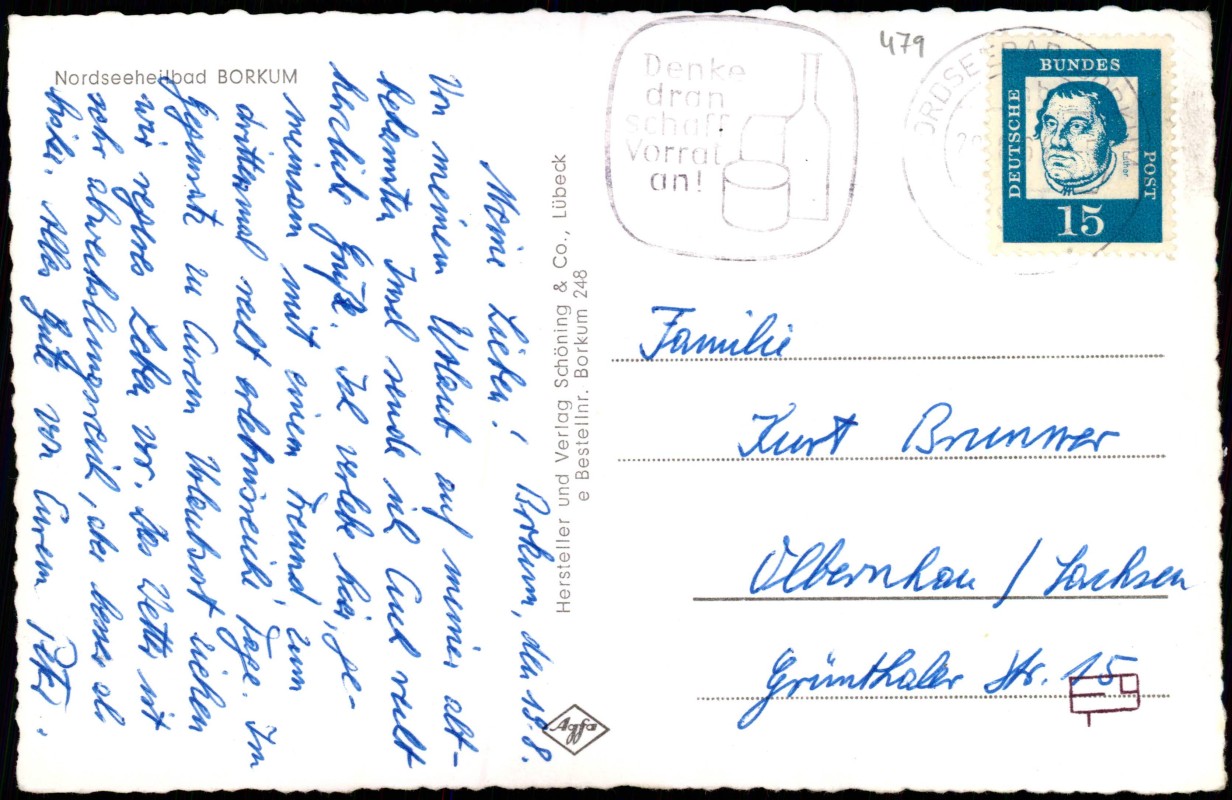 Nordseeheilbad BORKUM
Borkum, den 18.8.
Meine Lieben!
Von meinem Urlaub auf meiner alt-
bekannten Insel sende ich Euch recht
herzliche Grüße. Ich verlebe hier, ge-
meinsam mit einem Freund, zum
drittenmal recht erlebnisreiche Tage. Im
Gegensatz zu Eurem Urlaubsort ziehen
wir reges Leben vor. Das Wetter ist
sehr abwechslungsreich, aber besser als
bisher. Alles Gute von Eurem Peter.
Hersteller und Verlag Schöning & Co., Lübeck
e Bestellnr. Borkum 248
Agfa
Denke
dran
schaff
Vorrat
an!
479
NORDSEEBAD BORKUM
DEUTSCHE
BUNDES
POST
Luther
15
Familie
Kurt Brunner
Olbernhau / Sachsen
Grünthaler Str. 15